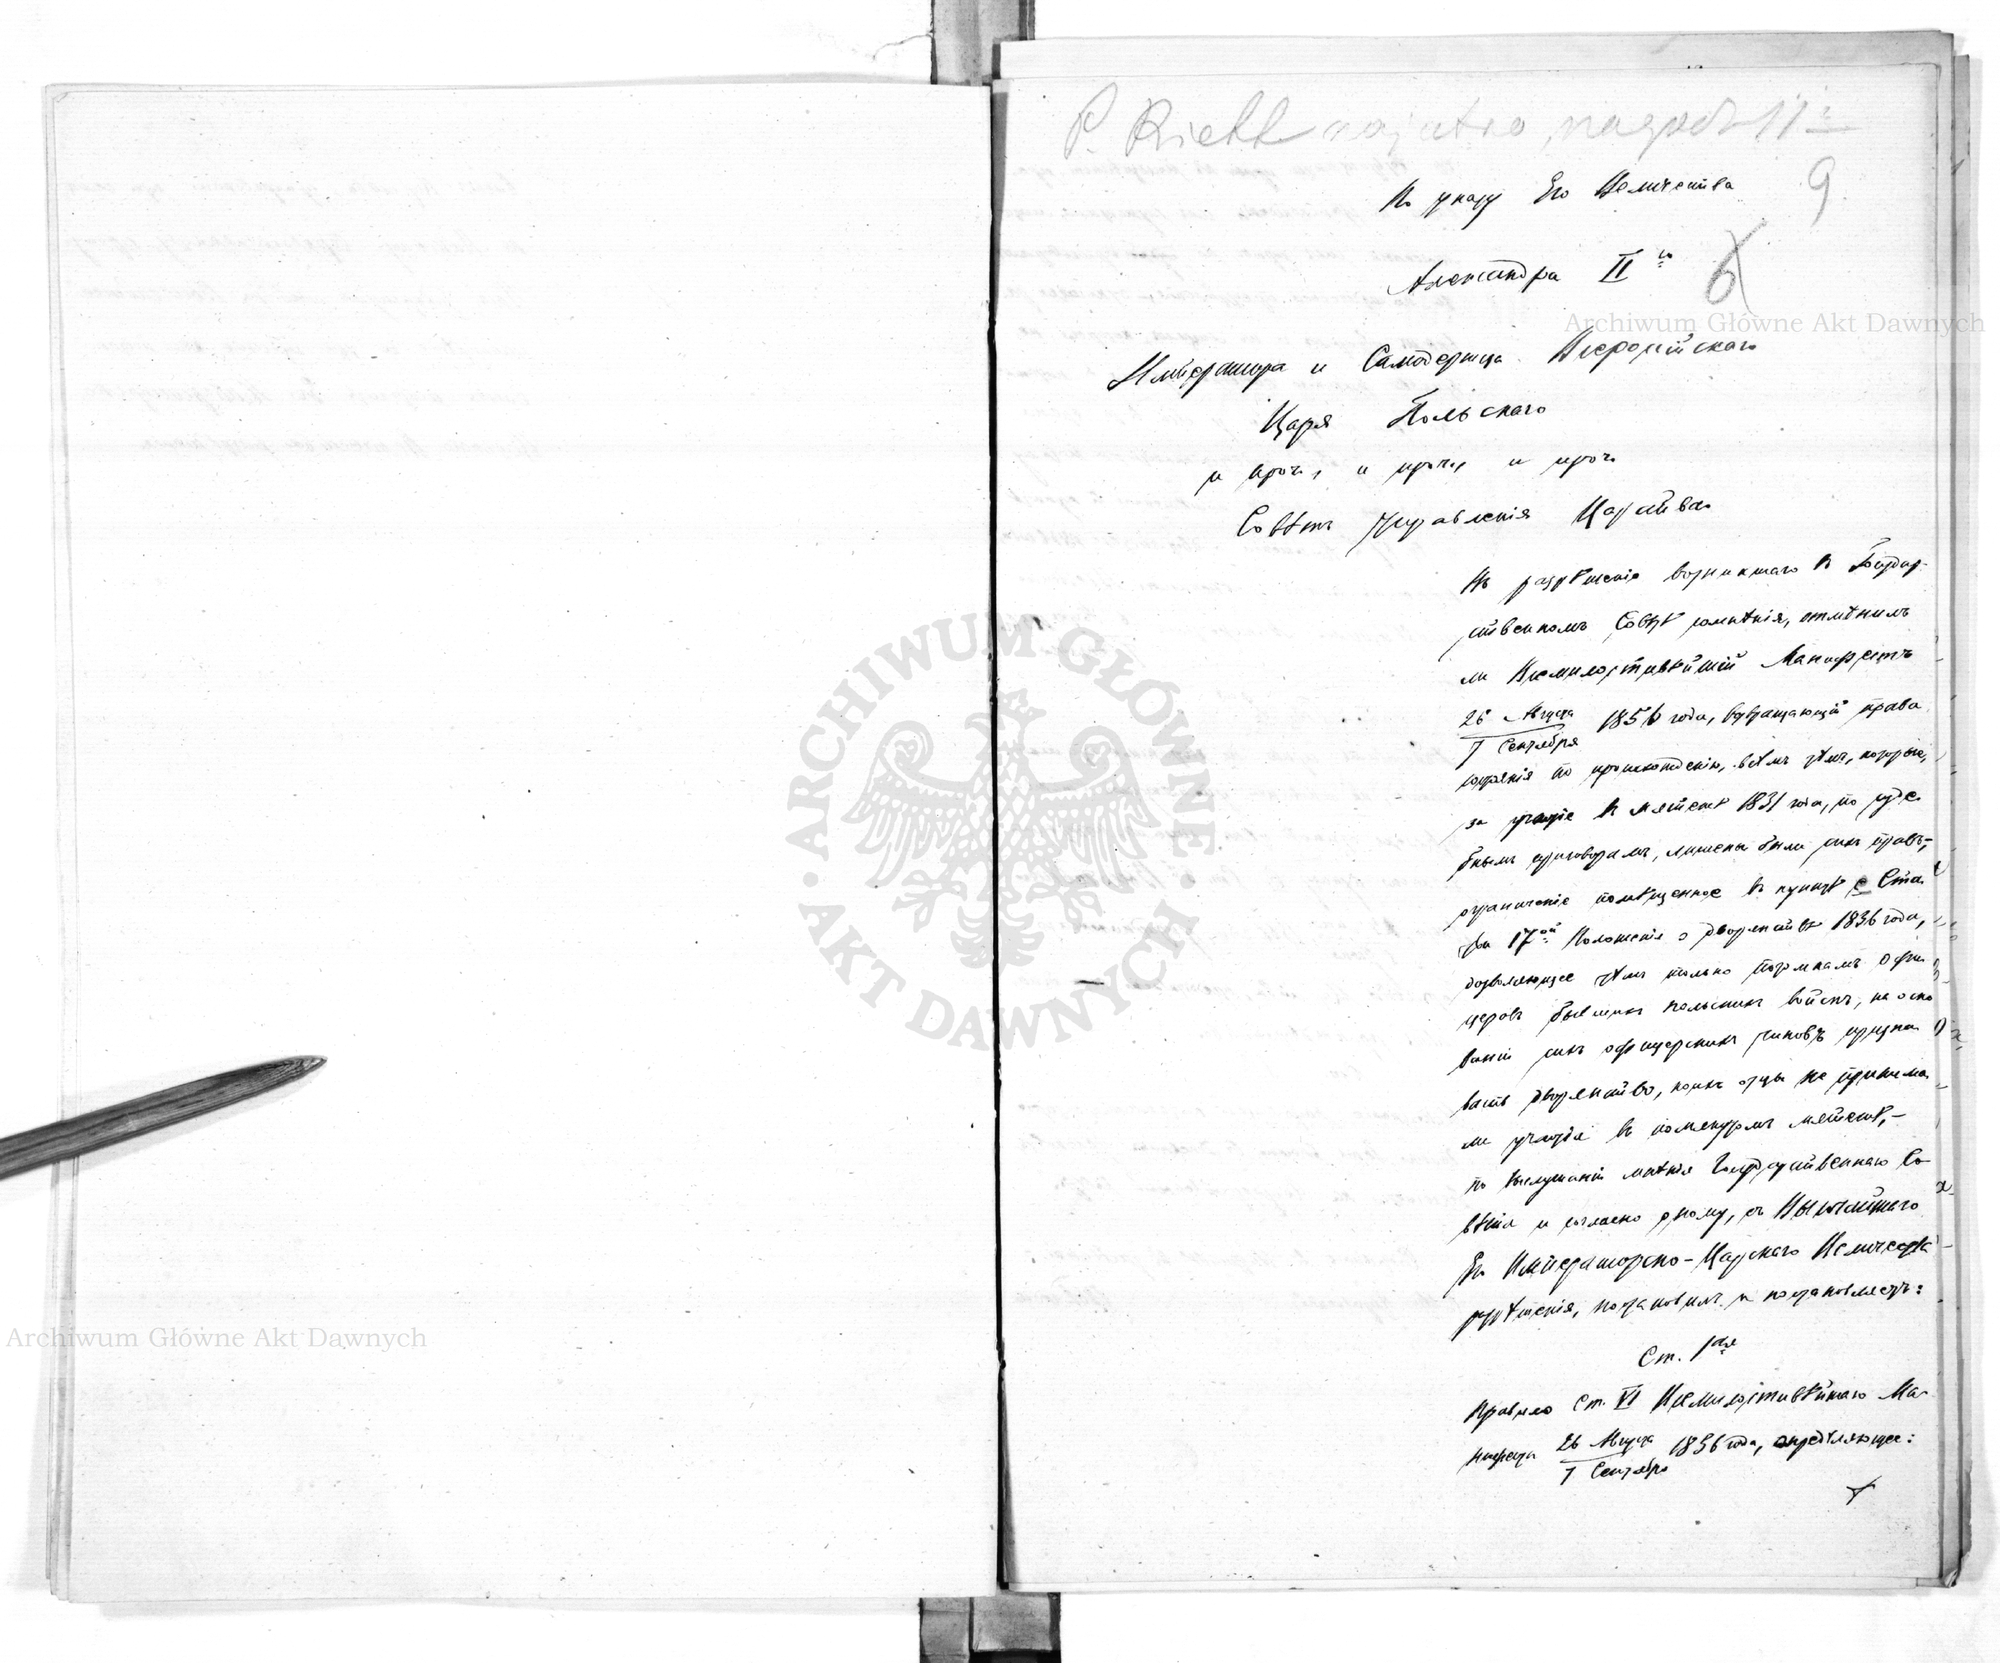 P. Riehl na jutro, na godz 11
9
По указу Его Величества
6
Александра II го
Императора и Самодержца Всероссійскаго
Царя Польскаго
и проч., и проч., и проч.
Совѣтъ Управленія Царства.
Въ разрѣшеніе возникшаго въ Государ-
ственномъ Совѣтѣ сомнѣнія, отмѣнилъ
ли Всемилостивѣйшій Манифестъ
26 Августа / 7 Сентября 1856 года, возвращающій права
состоянія по происхожденію, всѣмъ тѣмъ, которые,
за участіе въ мятежѣ 1831 года, по суде
бнымъ приговорамъ, лишены были сихъ правъ,-
ограниченіе помѣщенное въ пунктѣ с Ста
тьи 17ой Положенія о дворянствѣ 1836 года,
дозволяющее тѣмъ только потомкамъ офи
церовъ бывшихъ польскихъ войскъ, на осно
ваніи сихъ офицерскихъ чиновъ призна
вать дворянство, коихъ отцы не принима
ли участія въ помянутомъ мятежѣ,-
по выслушаніи мнѣнія Государственнаго Со
вѣта и согласно оному, съ Высочайшаго
Его Императорско-Царскаго Величества
разрѣшенія, постановилъ и постановляетъ:
Ст. 1ая
Правило Ст. VI Всемилостивѣйшаго Ма-
нифеста 26 Августа / 7 Сентября 1856 года, опредѣляющее:
Archiwum Główne Akt Dawnych
ARCHIWUM GŁÓWNE · AKT DAWNYCH ·
Archiwum Główne Akt Dawnych